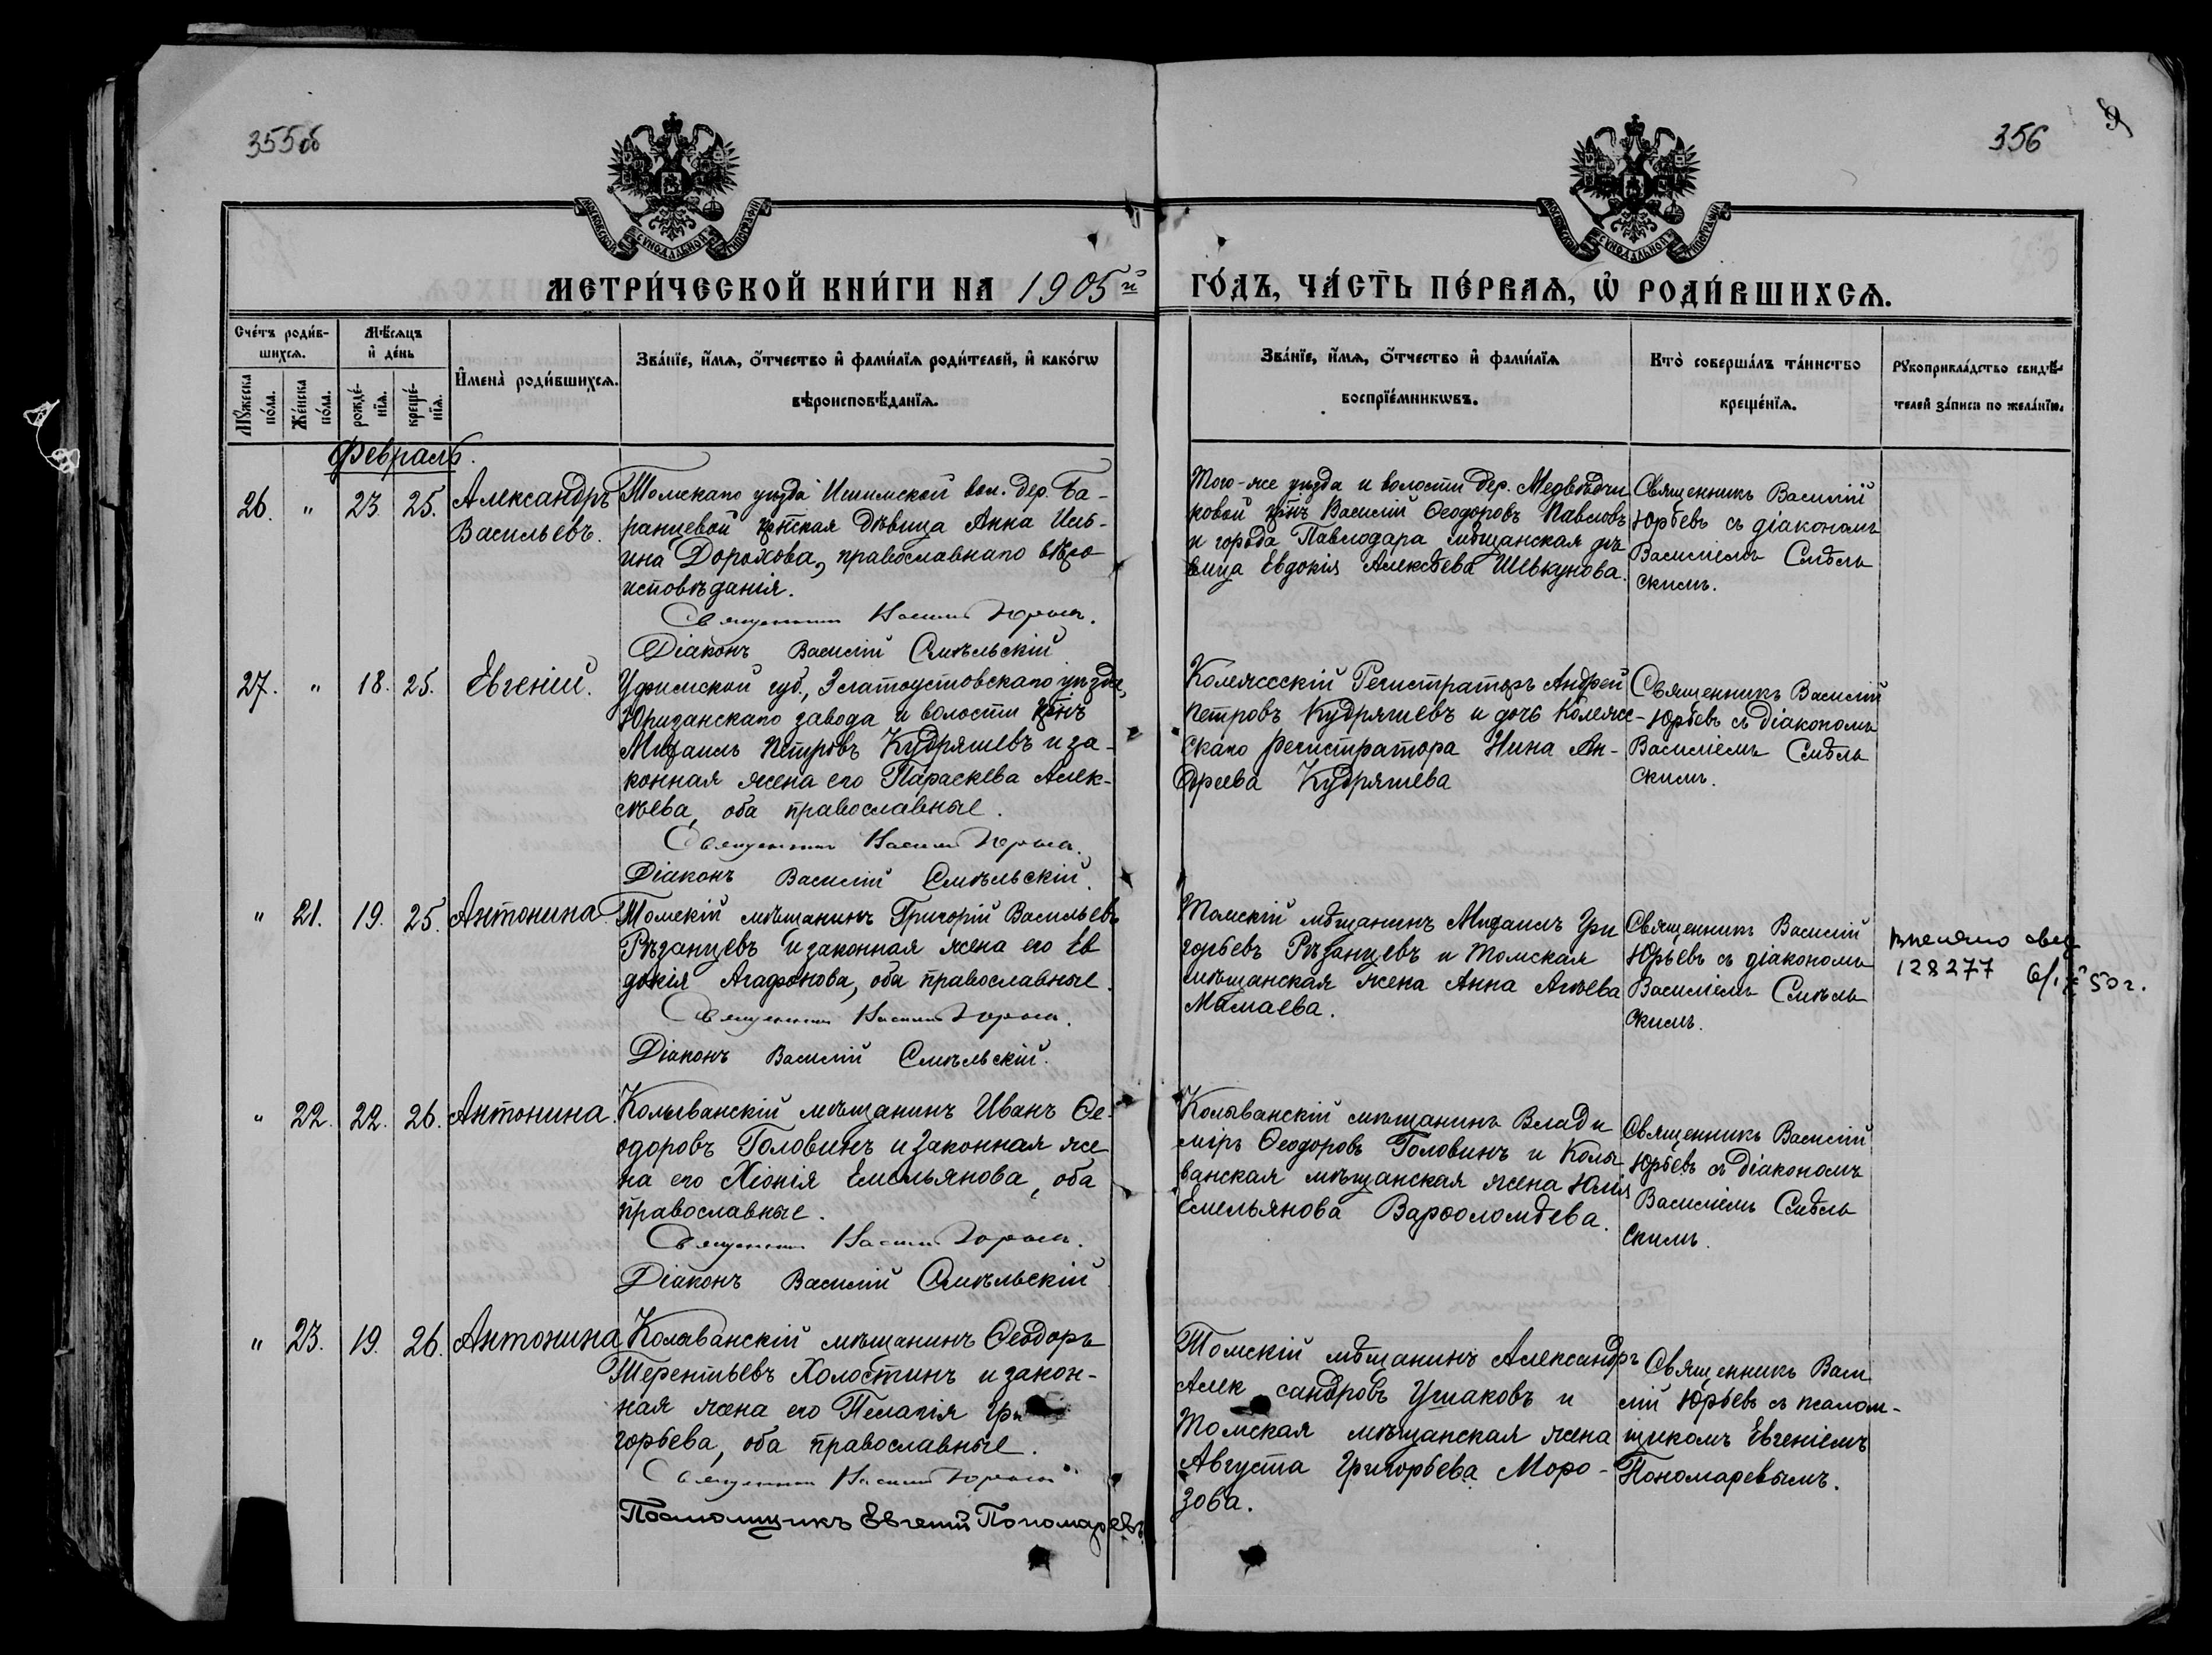 355об
356
9
МОСКОВСКОЙ СѴНОДАЛЬНОЙ ТИПОГРАФІИ
МОСКОВСКОЙ СѴНОДАЛЬНОЙ ТИПОГРАФІИ
МЕТРИ́ЧЕСКОЙ КНИ́ГИ НА 1905й
ГО́ДЪ, ЧА́СТЬ ПЕ́РВАѦ, Ѡ҆ РОДИ́ВШИХСѦ.
Сче́тъ роди́в-
шихсѧ.
Мꙋжеска
по́ла.
Же́нска
по́ла.
Мѣ́сѧцъ
и҆ де́нь
рожде́-
нїѧ.
креще́-
нїѧ.
И҆мена̀ роди́вшихсѧ.
Зва́нїе, и҆́мѧ, ѻ҆́тчество и҆ фами́лїѧ роди́телей, и҆ како́гѡ
вѣроисповѣ́данїѧ.
Зва́нїе, и҆́мѧ, ѻ҆́тчество и҆ фами́лїѧ
воспрїе́мникѡвъ.
Кто̀ соверша́лъ та́инство
креще́нїѧ.
Рꙋкоприкла́дство свидѣ́-
телей за́писи по жела́нїю.
Февраль.
26. " 23. 25. Александръ
Васильевъ.
Томскаго уѣзда Ишимской вол. дер. Ба-
ранцевой кр̃тская дѣвица Анна Иль-
ина Дорохова, православнаго вѣро
исповѣданія.
Священникъ Василій Юрьевъ.
Діаконъ Василій Смѣльскій
Того-же уѣзда и волости дер. Медвѣдчи
ковой кр̃нъ Василій Ѳеодоровъ Павловъ
и города Павлодара мѣщанская дѣ
вица Евдокія Алексѣева Шевкунова.
Священникъ Василій
Юрьевъ съ діакономъ
Василіемъ Смѣль
скимъ.
27. " 18. 25. Евгеній.
Уфимской губ., Златоустовскаго уѣзда,
Юризанскаго завода и волости кр̃нъ
Михаилъ Петровъ Кудряшевъ и за-
конная жена его Параскева Алек-
сѣева, оба православные.
Священникъ Василій Юрьевъ.
Діаконъ Василій Смѣльскій.
Колежсскій Регистраторъ Андрей
Петровъ Кудряшевъ и дочь Колежс-
скаго регистратора Нина Ан-
дреева Кудряшева
Священникъ Василій
Юрьевъ съ діакономъ
Василіемъ Смѣль
скимъ.
" 21. 19. 25. Антонина
Томскій мѣщанинъ Григорій Васильевъ
Рѣзанцевъ и законная жена его Ев
докія Агафонова, оба православные.
Священникъ Василій Юрьевъ.
Діаконъ Василій Смѣльскій.
Томскій мѣщанинъ Михаилъ Гри
горьевъ Рѣзанцевъ и Томская
мѣщанская жена Анна Агѣева
Мамаева.
Священникъ Василій
Юрьевъ съ діакономъ
Василіемъ Смѣль
скимъ.
128277 50 г.
" 22. 22. 26. Антонина.
Колыванскій мѣщанинъ Иванъ Ѳе-
одоровъ Головинъ и законная же
на его Хіонія Емельянова, оба
православные.
Священникъ Василій Юрьевъ.
Діаконъ Василій Смѣльскій
Колыванскій мѣщанинъ Влади
міръ Ѳеодоровъ Головинъ и Колы
ванская мѣщанская жена Юлія
Емельянова Варѳоломѣева.
Священникъ Василій
Юрьевъ съ діакономъ
Василіемъ Смѣль
скимъ.
" 23. 19. 26. Антонина
Колыванскій мѣщанинъ Ѳеодоръ
Терентьевъ Холостинъ и закон-
ная жена его Пелагія Гри
горьева, оба православные.
Священникъ Василій Юрьевъ
Псаломщикъ Евгеній Пономаревъ
Томскій мѣщанинъ Александръ
Алек сандровъ Ушаковъ и
Томская мѣщанская жена
Августа Григорьева Моро-
зова.
Священникъ Васи
лій Юрьевъ съ псалом-
щикомъ Евгеніемъ
Пономаревымъ.